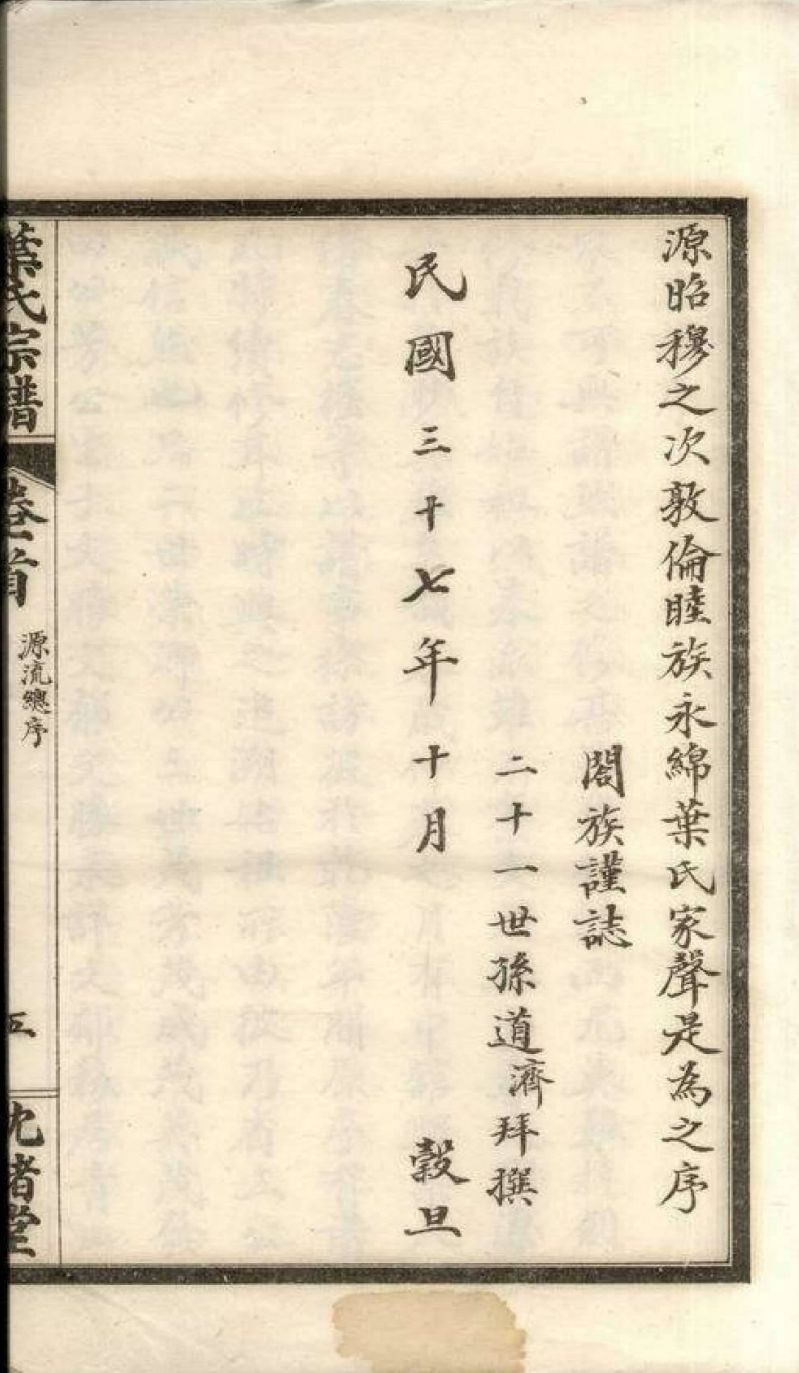 源昭穆之次敦倫睦族永綿葉氏家聲是為之序
閤族謹誌
二十一世孫道濟拜撰
民國三十七年十月 穀旦
葉氏宗譜
卷首
源流總序
五